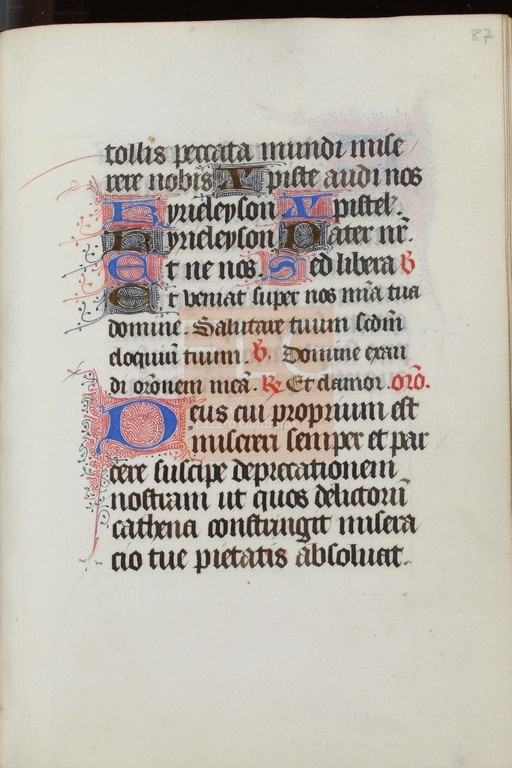 87
tollis peccata mundi mise
rere nobis Xpiste audi nos
Kyrieleyson Xpistel.
Kyrieleyson Pater nr̄.
Et ne nos. Sed libera ℣
Et veniat super nos mīa tua
domine. Salutare tuum scdm̄
eloquiū tuum. ℣. Domine exau
di orōnem meā. ℟ Et clamor. orō.
Deus cui proprium est
misereri semper et par
cere suscipe deprecationem
nostram ut quos delictorū
cathena constringit misera
cio tue pietatis absoluat.